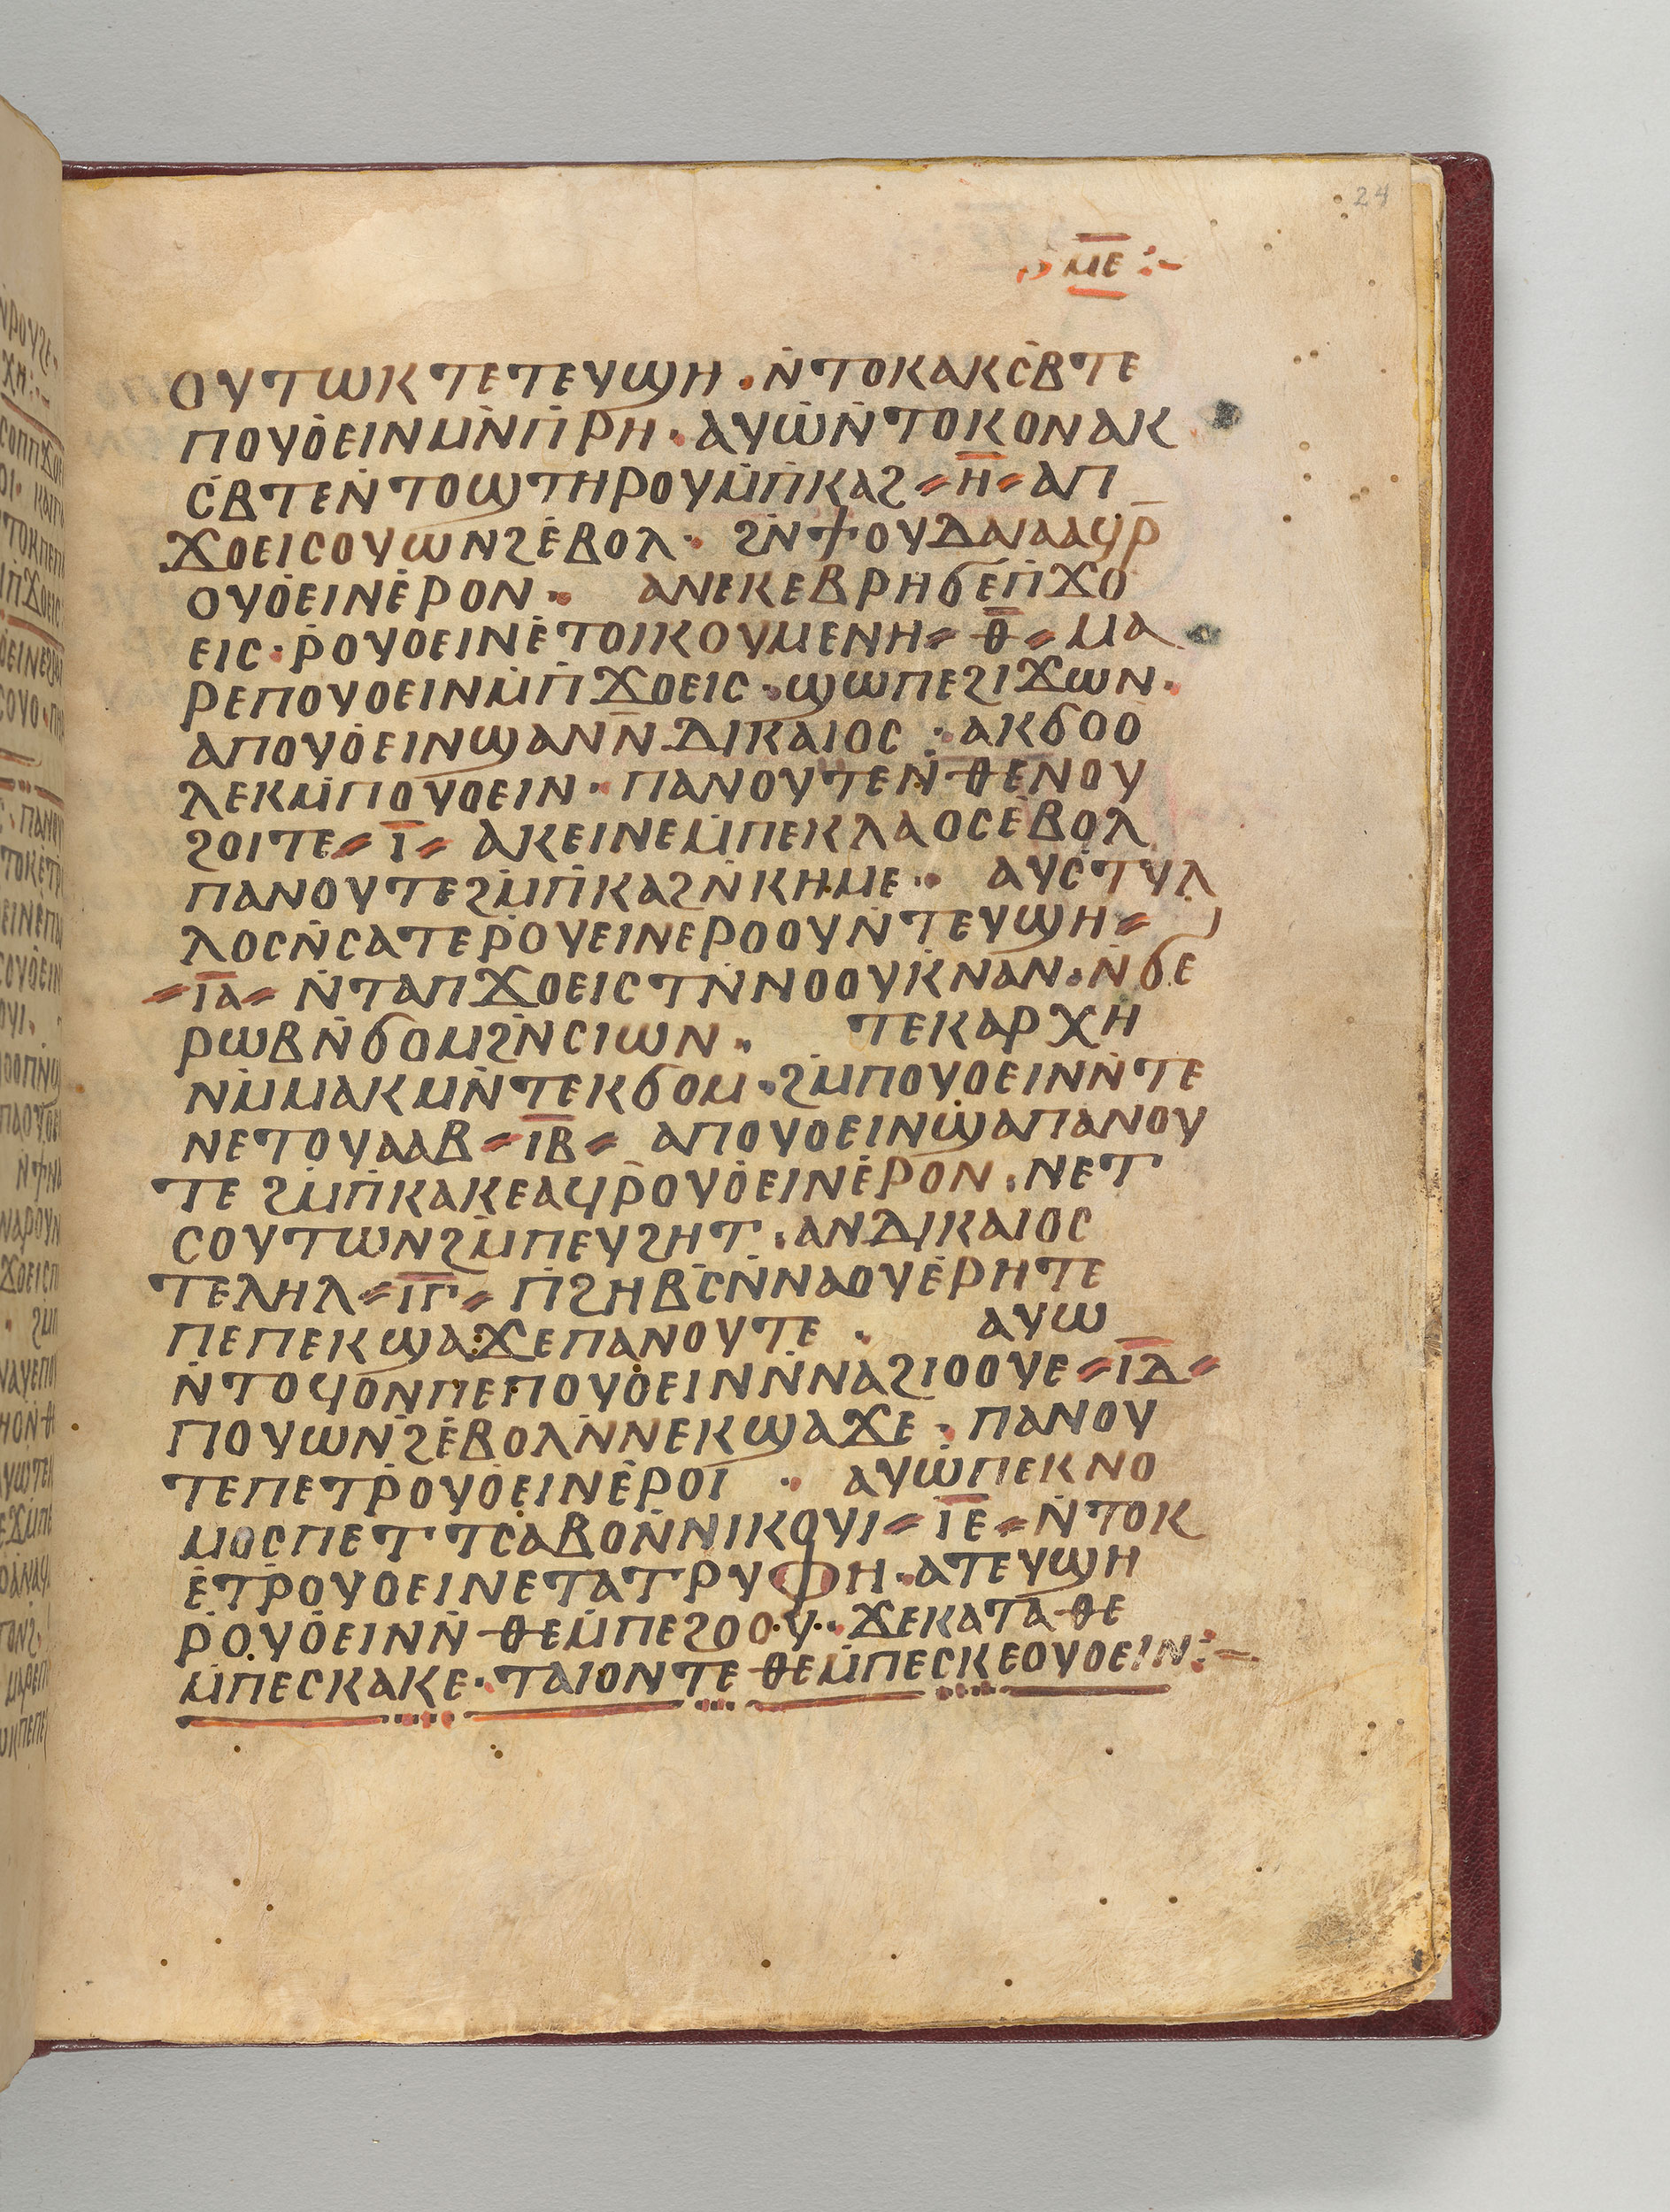 24
ⲙⲉ:-
ⲟⲩⲧⲱⲕ ⲧⲉ ⲧⲉⲩϣⲏ · ⲛ̇ⲧⲟⲕ ⲁⲕⲥ̇ⲃⲧⲉ
ⲡⲟⲩⲟ̇ⲉⲓⲛ ⲙ̇ⲛ̇ⲡ̇ⲣⲏ · ⲁⲩⲱ̇ ⲛ̇ⲧⲟⲕ ⲟⲛ ⲁⲕ
ⲥ̇ⲃⲧⲉ ⲛ̇ⲧⲟϣ ⲧⲏⲣⲟⲩ ⲙ̇ⲡ̇ⲕⲁϩ ⸗ ⲏ̅ ⸗ ⲁⲡ
ϫⲟⲉⲓⲥ ⲟⲩⲱⲛϩ ⲉ̇ⲃⲟⲗ · ϩⲛ̇ ϯⲟⲩⲇⲁⲓⲁ ⲁϥⲣ̅
ⲟⲩⲟ̇ⲉⲓⲛ ⲉ̇ⲣⲟⲛ · ⲁⲛⲉⲕⲉⲃⲣⲏϭⲉ ⲡ̇ϫⲟ
ⲉⲓⲥ · ⲣ̇ⲟⲩⲟⲉⲓⲛ ⲉ̇ⲧⲟⲓⲕⲟⲩⲙⲉⲛⲏ ⸗ ⲑ̅ ⸗ ⲙⲁ
ⲣⲉ ⲡⲟⲩⲟⲉⲓⲛ ⲙ̇ⲡ̇ϫⲟⲉⲓⲥ · ϣⲱⲡⲉ ϩⲓϫⲱⲛ ·
ⲁⲡⲟⲩⲟ̇ⲉⲓⲛ ϣⲁ ⲛ̇ⲛ̅ⲇⲓⲕⲁⲓⲟⲥ : ⲁⲕϭⲟⲟ
ⲗⲉⲕ ⲙ̇ⲡⲟⲩⲟⲉⲓⲛ · ⲡⲁⲛⲟⲩⲧⲉ ⲛ̇ⲑⲉ ⲛⲟⲩ
ϩⲟⲓⲧⲉ ⸗ ⲓ̅ ⸗ ⲁⲕⲉⲓⲛⲉ ⲙ̇ⲡⲉⲕⲗⲁⲟⲥ ⲉ̇ⲃⲟⲗ
ⲡⲁⲛⲟⲩⲧⲉ ϩⲙ̇ⲡ̇ⲕⲁϩ ⲛ̇ⲕⲏⲙⲉ · ⲁⲩⲥ̇ⲧⲩⲗ
ⲗⲟⲥ ⲛ̇ⲥⲁⲧⲉ ⲣ̇ⲟⲩⲉⲓⲛ ⲉⲣⲟⲟⲩ ⲛ̇ⲧⲉⲩϣⲏ ⸗
⸗ ⲓ̅ⲁ̅ ⸗ ⲛ̇ⲧⲁⲡϫⲟⲉⲓⲥ ⲧⲛ̇ⲛⲟⲟⲩⲕ̇ ⲛⲁⲛ · ⲛ̇ϭⲉ
ⲣⲱⲃ ⲛ̇ϭⲟⲙ ϩⲛ̇ⲥⲓⲱⲛ · ⲧⲉⲕⲁⲣⲭⲏ
ⲛⲙ̇ⲙⲁⲕ ⲙⲛ̇ⲧⲉⲕϭⲟⲙ · ϩⲙ̇ⲡⲟⲩⲟⲉⲓⲛ ⲛ̇ⲧⲉ
ⲛⲉⲧⲟⲩⲁⲁⲃ ⸗ ⲓ̅ⲃ̅ ⸗ ⲁⲡⲟⲩⲟⲉⲓⲛ ϣⲁ ⲡⲁⲛⲟⲩ
ⲧⲉ ϩⲙ̇ⲡ̇ⲕⲁⲕⲉ ⲁϥⲣ̅ⲟⲩⲟ̇ⲉⲓⲛ ⲉ̇ⲣⲟⲛ · ⲛⲉⲧ
ⲥⲟⲩⲧⲱⲛ ϩⲙ̇ⲡⲉⲩϩⲏⲧ · ⲁⲛⲇⲓⲕⲁⲓⲟⲥ
ⲧⲉⲗⲏⲗ ⸗ ⲓ̅ⲅ̅ ⸗ ⲡ̇ϩⲏⲃ̅ⲥ̇ ⲛ̇ⲛⲁⲟⲩⲉ̇ⲣⲏⲧⲉ
ⲡⲉ ⲡⲉⲕϣⲁϫⲉ ⲡⲁⲛⲟⲩⲧⲉ · ⲁⲩⲱ
ⲛ̇ⲧⲟϥ ⲟⲛ ⲡⲉ ⲡⲟⲩⲟ̇ⲉⲓⲛ ⲛ̇ⲛⲁϩⲓⲟⲟⲩⲉ ⸗ ⲓ̅ⲇ̅ ⸗
ⲡⲟⲩⲱⲛϩ ⲉ̇ⲃⲟⲗ ⲛ̇ⲛⲉⲕϣⲁϫⲉ · ⲡⲁⲛⲟⲩ
ⲧⲉ ⲡⲉⲧⲣ̇ⲟⲩⲟ̇ⲉⲓⲛ ⲉ̇ⲣⲟⲓ · ⲁⲩⲱ̇ ⲡⲉⲕⲛⲟ
ⲙⲟⲥ ⲡⲉⲧⲧⲥ̇ⲁⲃⲟ ⲛ̇ⲛⲓⲕⲟⲩⲓ ⸗ ⲓ̅ⲉ̅ ⸗ ⲛ̇ⲧⲟⲕ
ⲉ̇ⲧⲣ̇ⲟⲩⲟⲉⲓⲛ ⲉⲧⲁⲧⲣⲩⲫⲏ · ⲁⲧⲉⲩϣⲏ
ⲣ̇ⲟⲩⲟ̇ⲉⲓⲛ ⲛ̇ⲑⲉ ⲙ̇ⲡⲉϩⲟⲟⲩ · ϫⲉ ⲕⲁⲧⲁ ⲑⲉ
ⲙ̇ⲡⲉⲥⲕⲁⲕⲉ · ⲧⲁⲓ ⲟⲛ ⲧⲉ ⲑⲉ ⲙ̇ⲡⲉⲥⲕⲉⲟⲩⲟⲉⲓⲛ :-